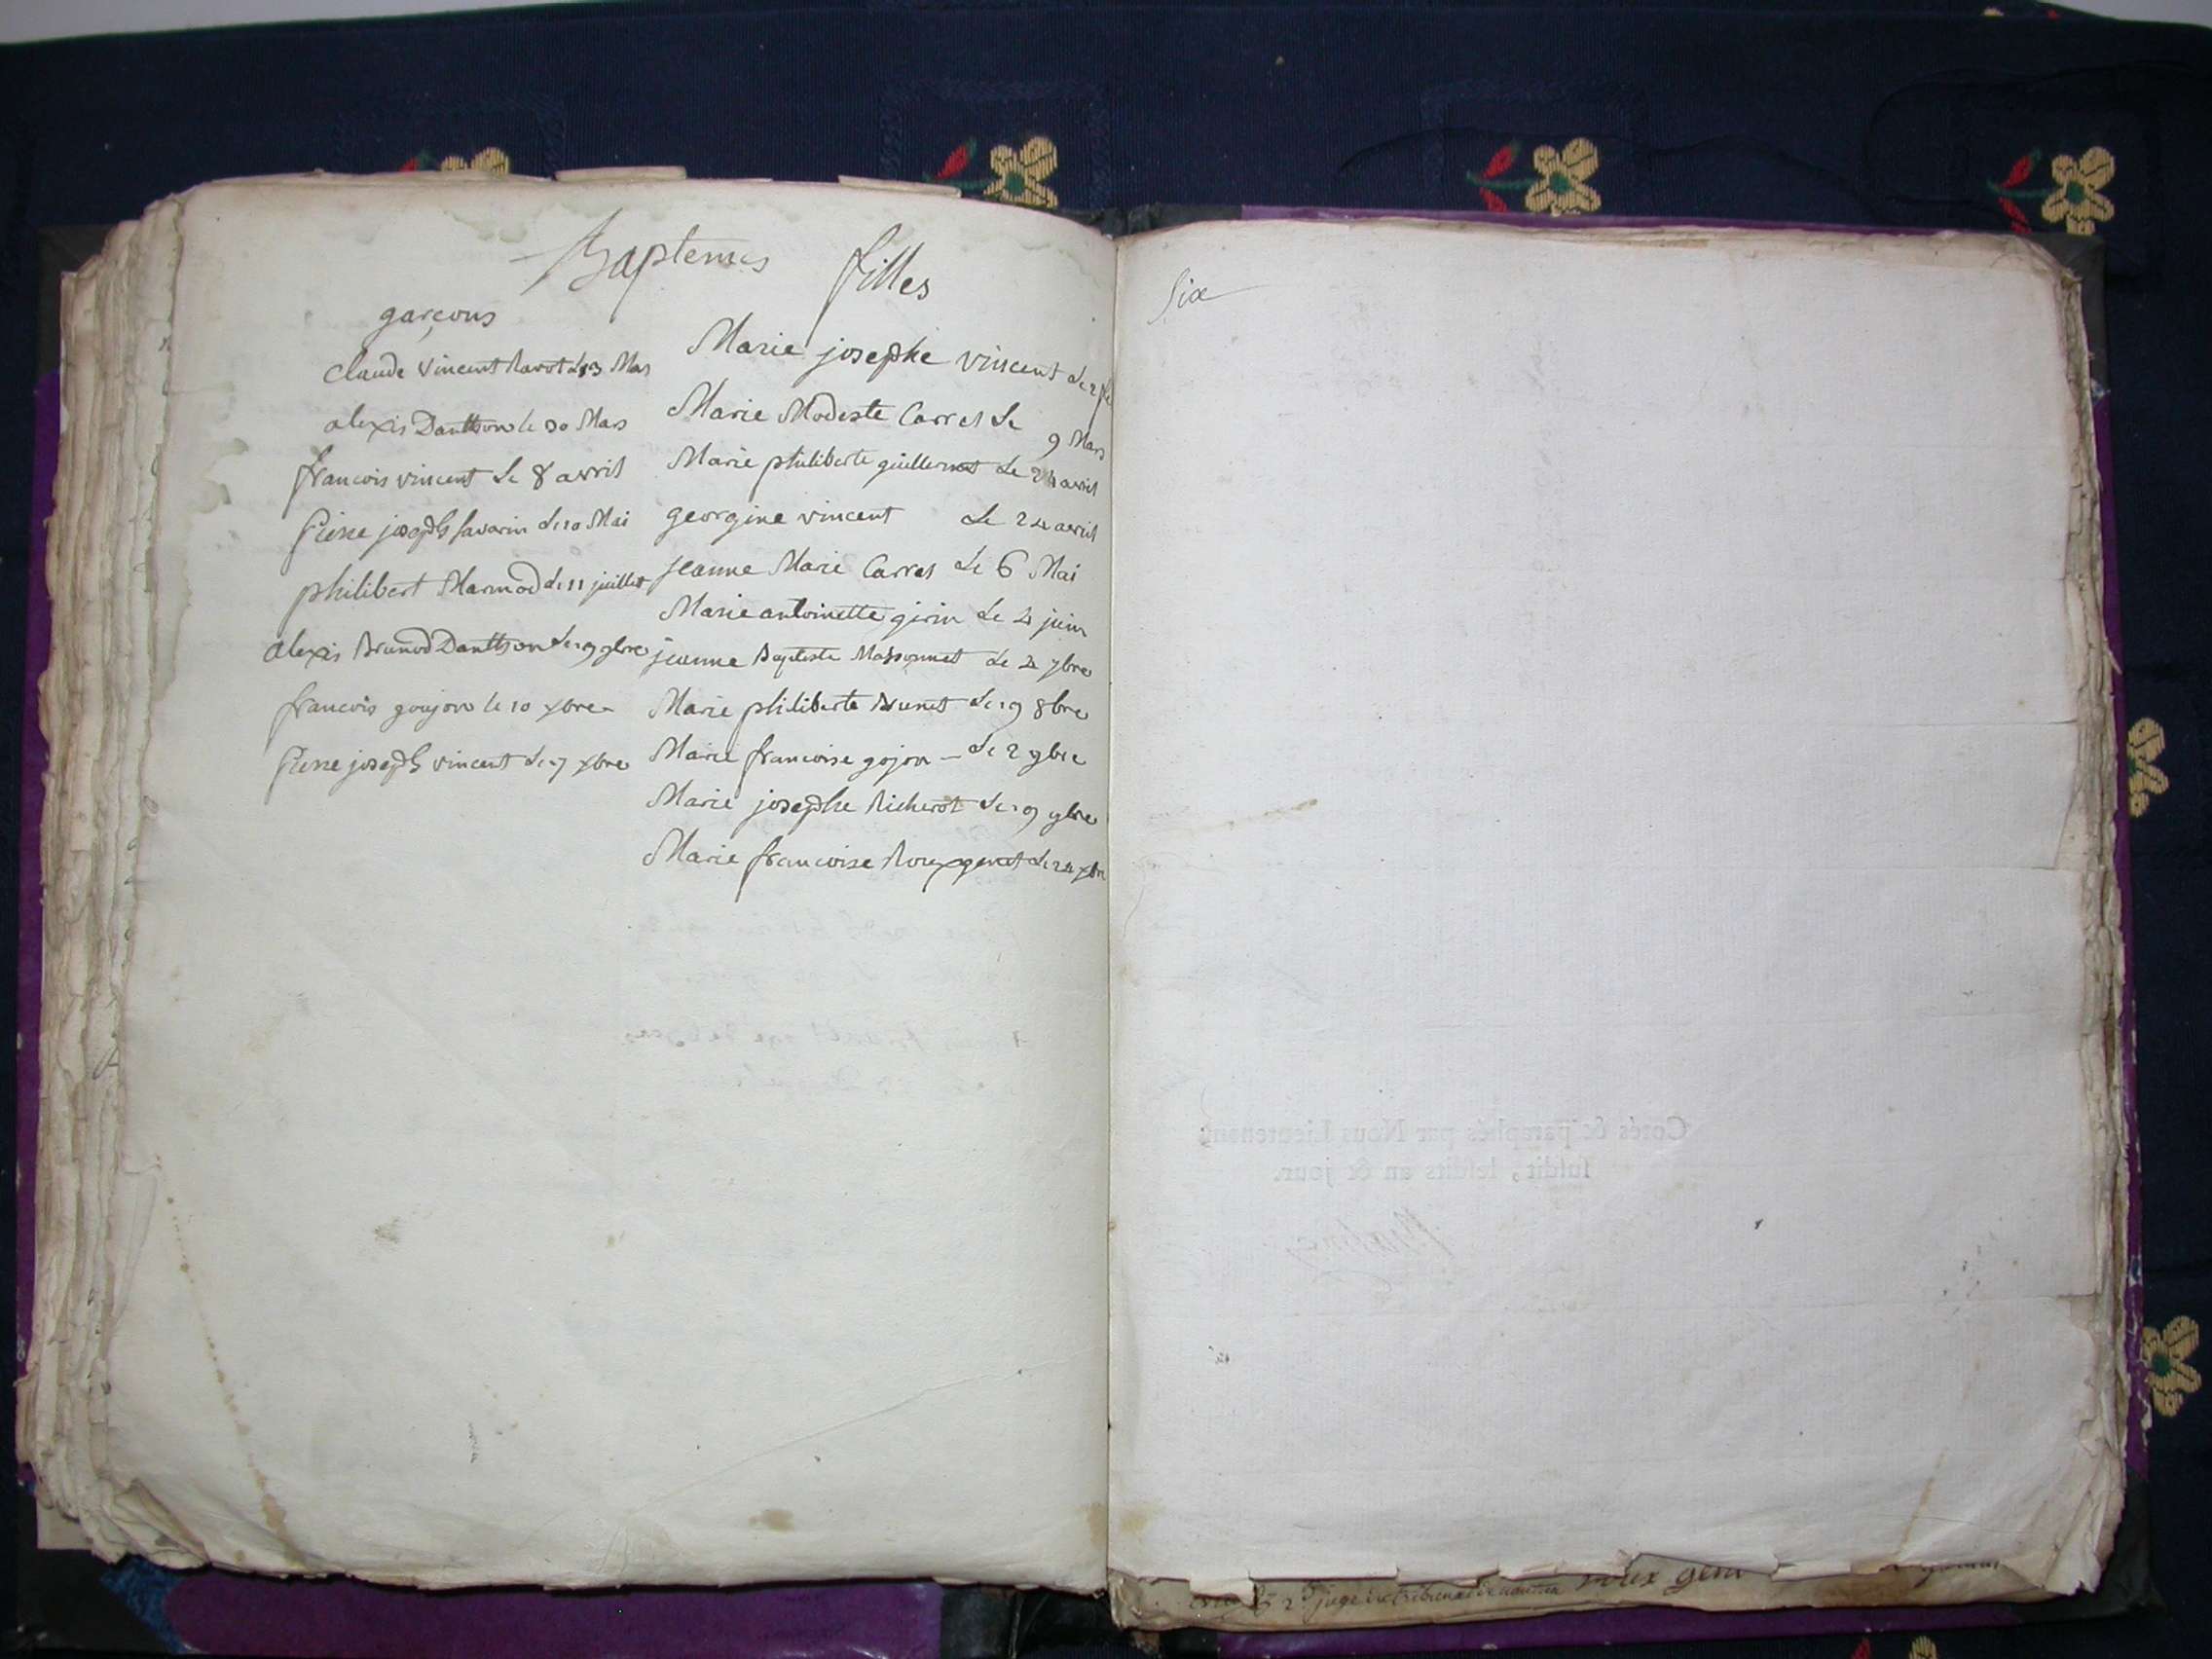 Baptemes
garçons
claude Vincent Ravot Le 3 Mars
alexis Dantthon le 30 Mars
francois vincent Le 8 avril
Pierre joseph savarin Le 10 Mai
philibert Marmod Le 11 juillet
alexis Brunod Dantthon Le 19 9bre
francois goujon le 10 xbre
Pierre joseph vincent Le 7 xbre
filles
Marie josephe vincent Le 2
Marie Modeste Carrel Le 9 Mars
Marie philiberte guillermet Le avril
georgine vincent Le 24 avril
jeanne Marie Carrel Le 6 Mai
Marie antoinette girin Le 4 juin
jeanne Baptiste Massonnet Le 4 7bre
Marie philiberte Brunet Le 19 8bre
Marie francoise gojon – Le 2 9bre
Marie josephe Richerot Le 19 9bre
Marie francoise Rouxgenet Le 24 xbre
Six
Cotés & paraphés par Nous Lieutenant
susdit, lesdits an & jour.